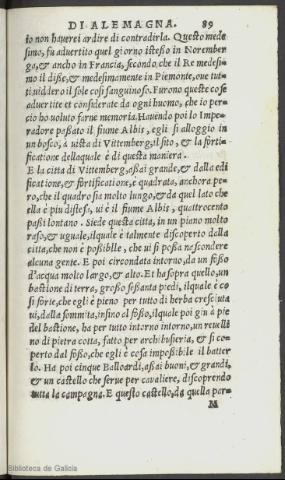 DI ALEMAGNA. 89
io non hauerei ardire di contradirla. Questo mede
simo, fu aduertito quel giorno istesso in Norember
ga, & ancho in Francia, secondo, che il Re medesi=
mo il disse, & medesimamente in Piemonte, oue tut=
ti uidder o il sole cosi sanguinoso. Furono queste cose
aduertite et considerate da ogni huomo, che io per=
cio ho uoluto farne memoria. Hauendo poi lo Impe=
radore passato il fiume Albis, egli si alloggio in
un bosco, a uista di Vittemberg, il sito, & la forti=
ficatione dellaquale è di questa maniera.
E la citta di Vittemberg, assai grande, & dalla edi
ficatione, & fortificatione, e quadrata, anchora pe=
ro, che il quadro sia molto lungo, & da quel lato che
ella è piu distesa, ui è il fiume Albis, quattrocento
passi lontano. Siede questa citta, in un piano molto
raso, & uguale, ilquale è talmente discoperto dalla
citta, che non è possibile, che ui si possa nascondere
alcuna gente. E poi circondata intorno, da un fosso
d'acqua molto largo, & alto. Et ha sopra quello, un
bastione di terra, grosso sessanta piedi, ilquale è co
si forte, che egli è pieno per tutto di herba cresciuta
ui, dalla sommita, insino al fosso, ilquale poi giu à pie
del bastione, ha per tutto intorno intorno, un reuelli
no di pietra cotta, fatto per archibuseria, & si co=
perto dal fosso, che egli è cosa impossibile il batter
lo. Ha poi cinque Balloardi, assai buoni, & grandi,
& un castello che serue per caualiere, discoprendo
tutta la campagna. E questo castello, da quella par=
M
Biblioteca de Galicia